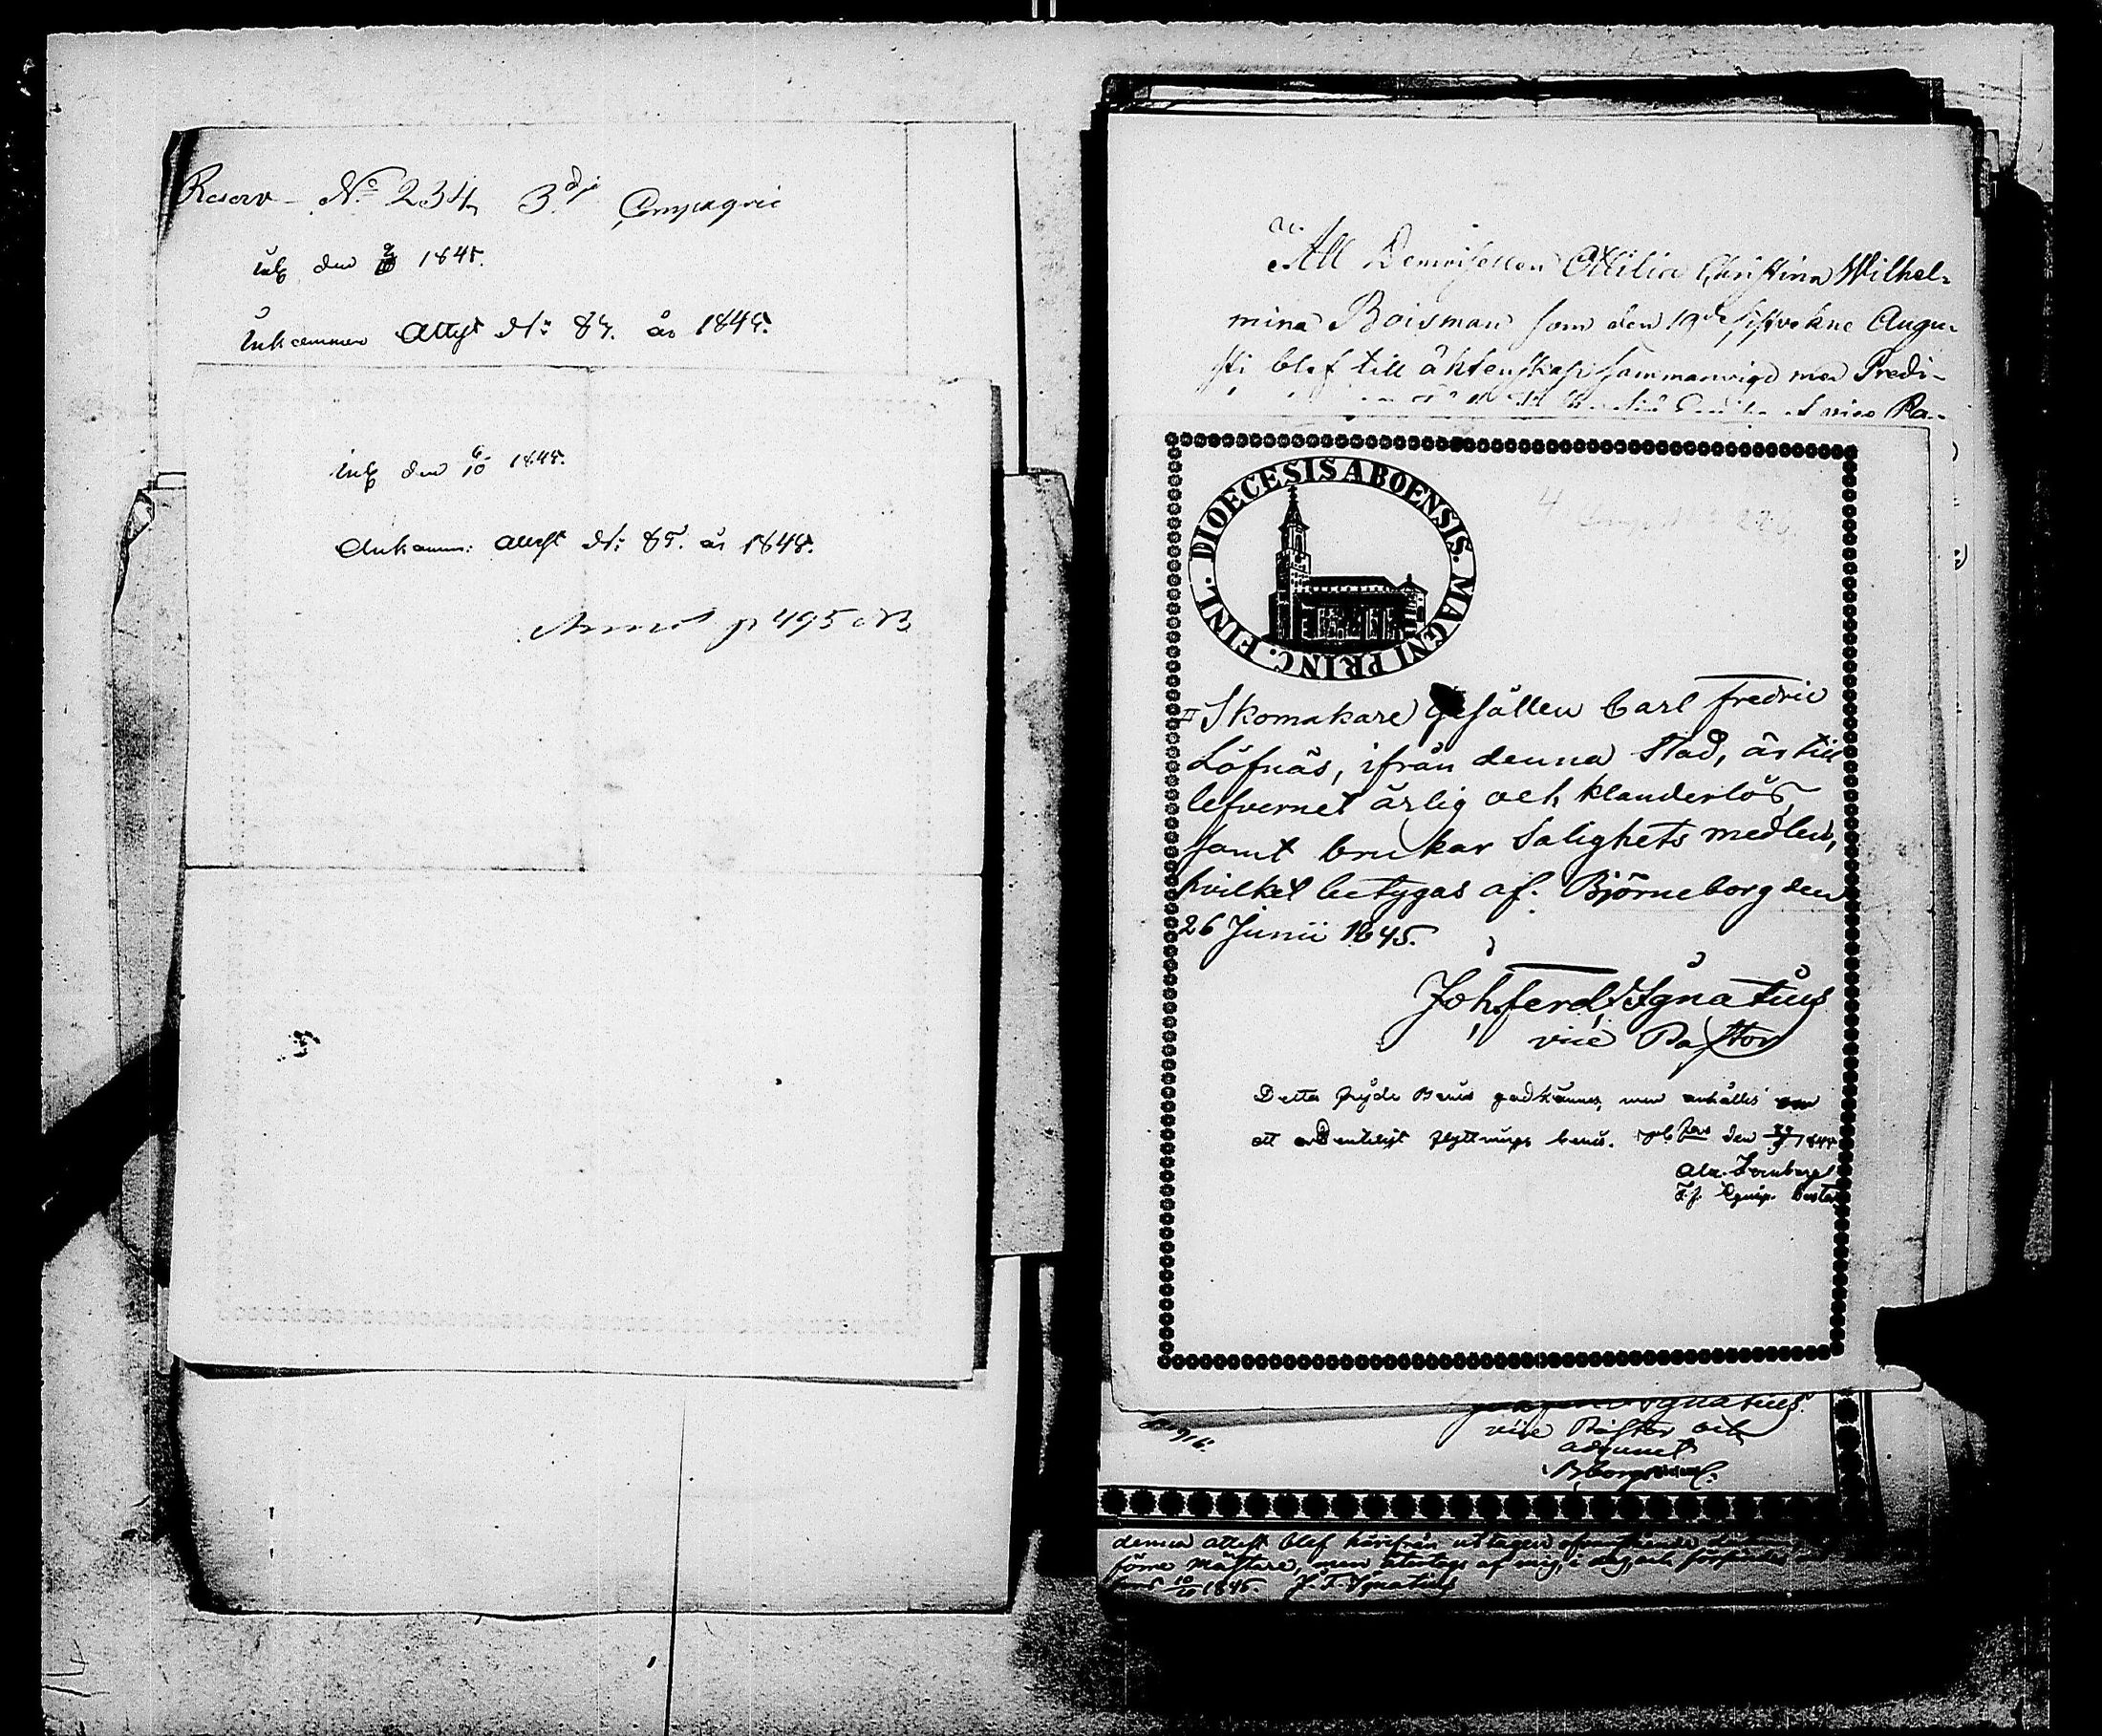 Reserv No 234 3dje Compagnie
ink den 9/10 1845.
Inkommen Attest No: 84. år 1845.
ink den 6/10 1845.
Ankomm: Attest No: 85. år 1845.
p 495
Att Demoisellen Ottilia Christina Wilhel-
mina Boisman som den 19de sistvekne Augu-
sti blef till äktenskap sammanvigd med Predi-
vice Pa-
DIOECESIS ABOENSIS. MAGNI PRINC. FINL.
Skomakare Gesällen Carl Fredric
Löfnäs, ifrån denna Stad, är till
lefvernet ärlig och klanderlös,
samt brukar Salighets medlen,
hvilket betygas af. Björneborg den
26 Junii 1845.
Joh. Ferd. Ignatius
vice Pastor
Detta Bevis godkännes, men anhålles om
ett ordenteligt flyttnings bevis. den 1845
Equip.
Ignatius
vice Pastor och
adjunct
denna attest blef härifrån uttagen
förre Mästare, men återtogs af mig,
10/10 1845. J. F. Ignatius